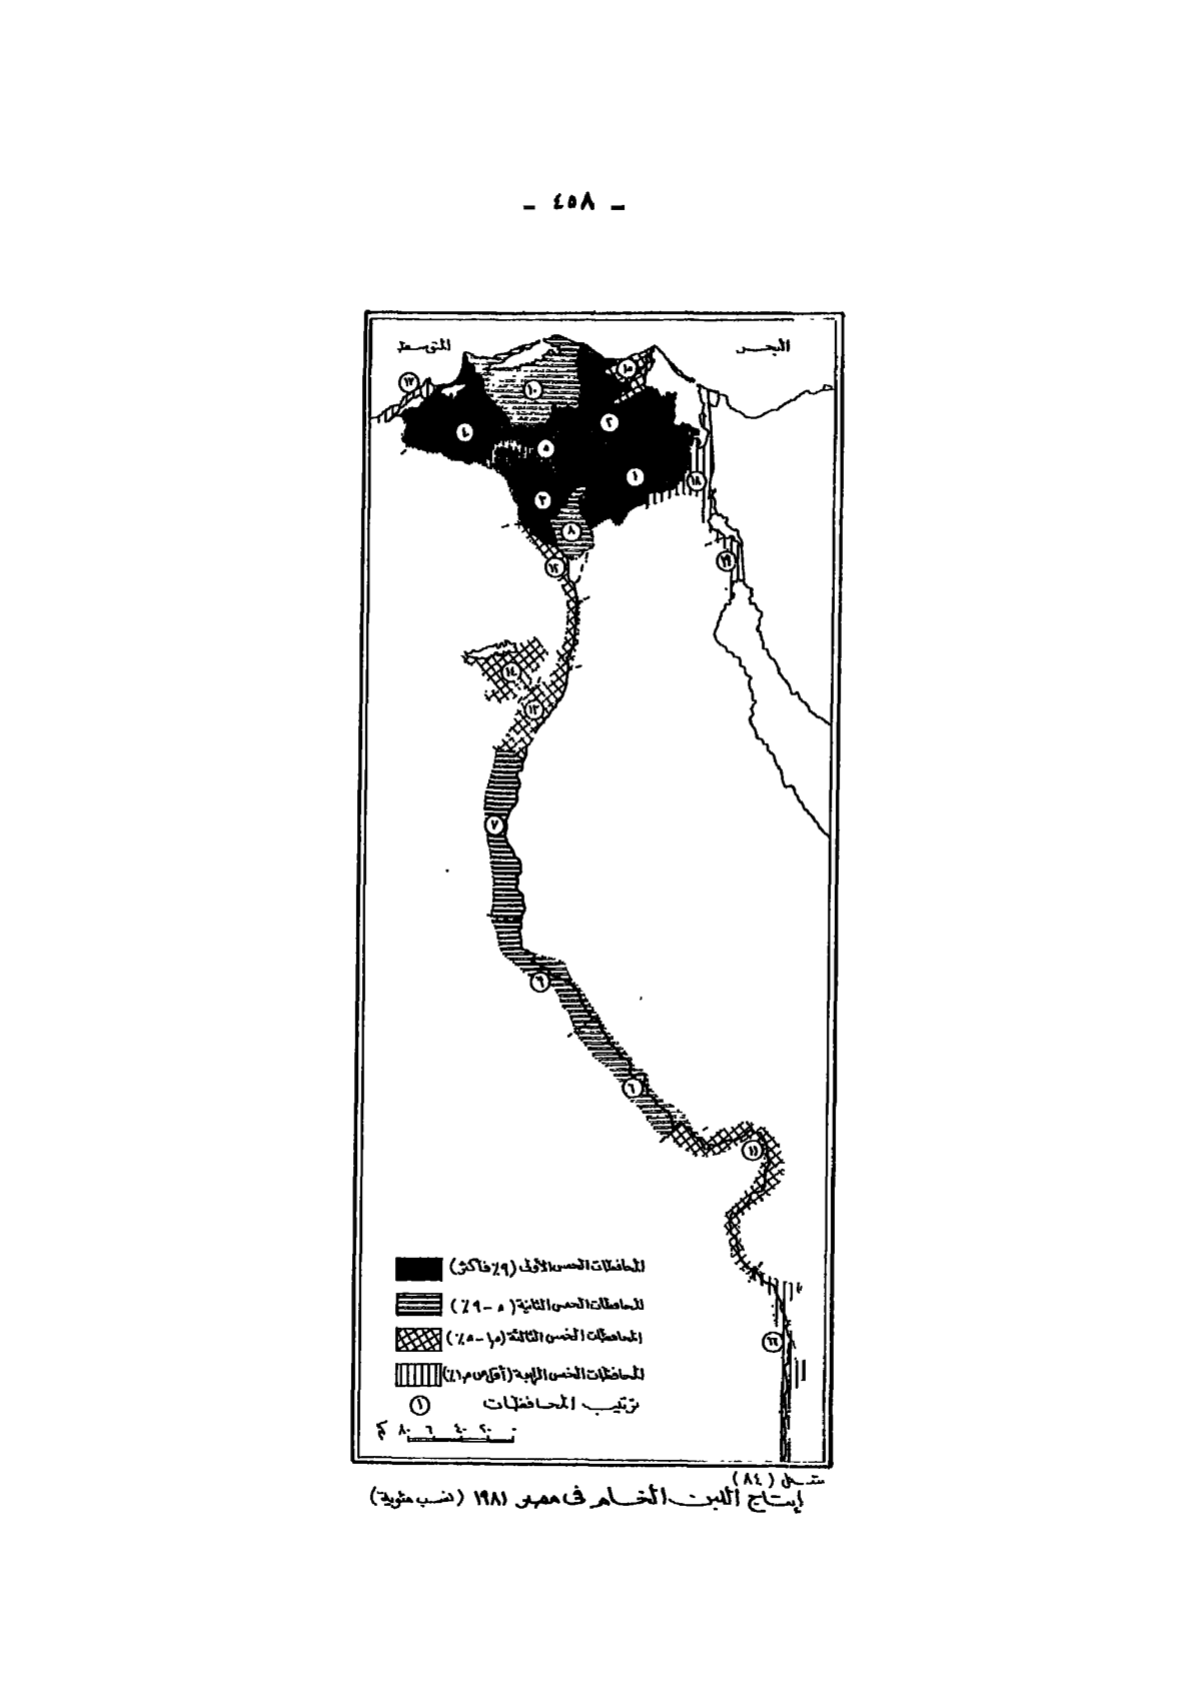 - ٤٥٨ -
البحر المتوسط
١٧
١٥
١٠
٢
٤
٥
١
١٨
٣
٨
١٩
١٢
١٤
١٣
٧
٩
٦
١١
المحافظات الخمس الأولى (٩٪ فأكثر)
المحافظات الخمس الثانية (٥ - ٩٪)
المحافظات الخمس الثالثة (١٫٥ - ٥٪)
المحافظات الخمس الرابعة (أقل من ١٫٥٪)
ترتيب المحافظات ١
٢٠ ٤٠ ٦٠ ٨٠ كم
شكل (٨٤)
إنتاج اللبن الخام فى مصر ١٩٨١ (نسب مئوية)